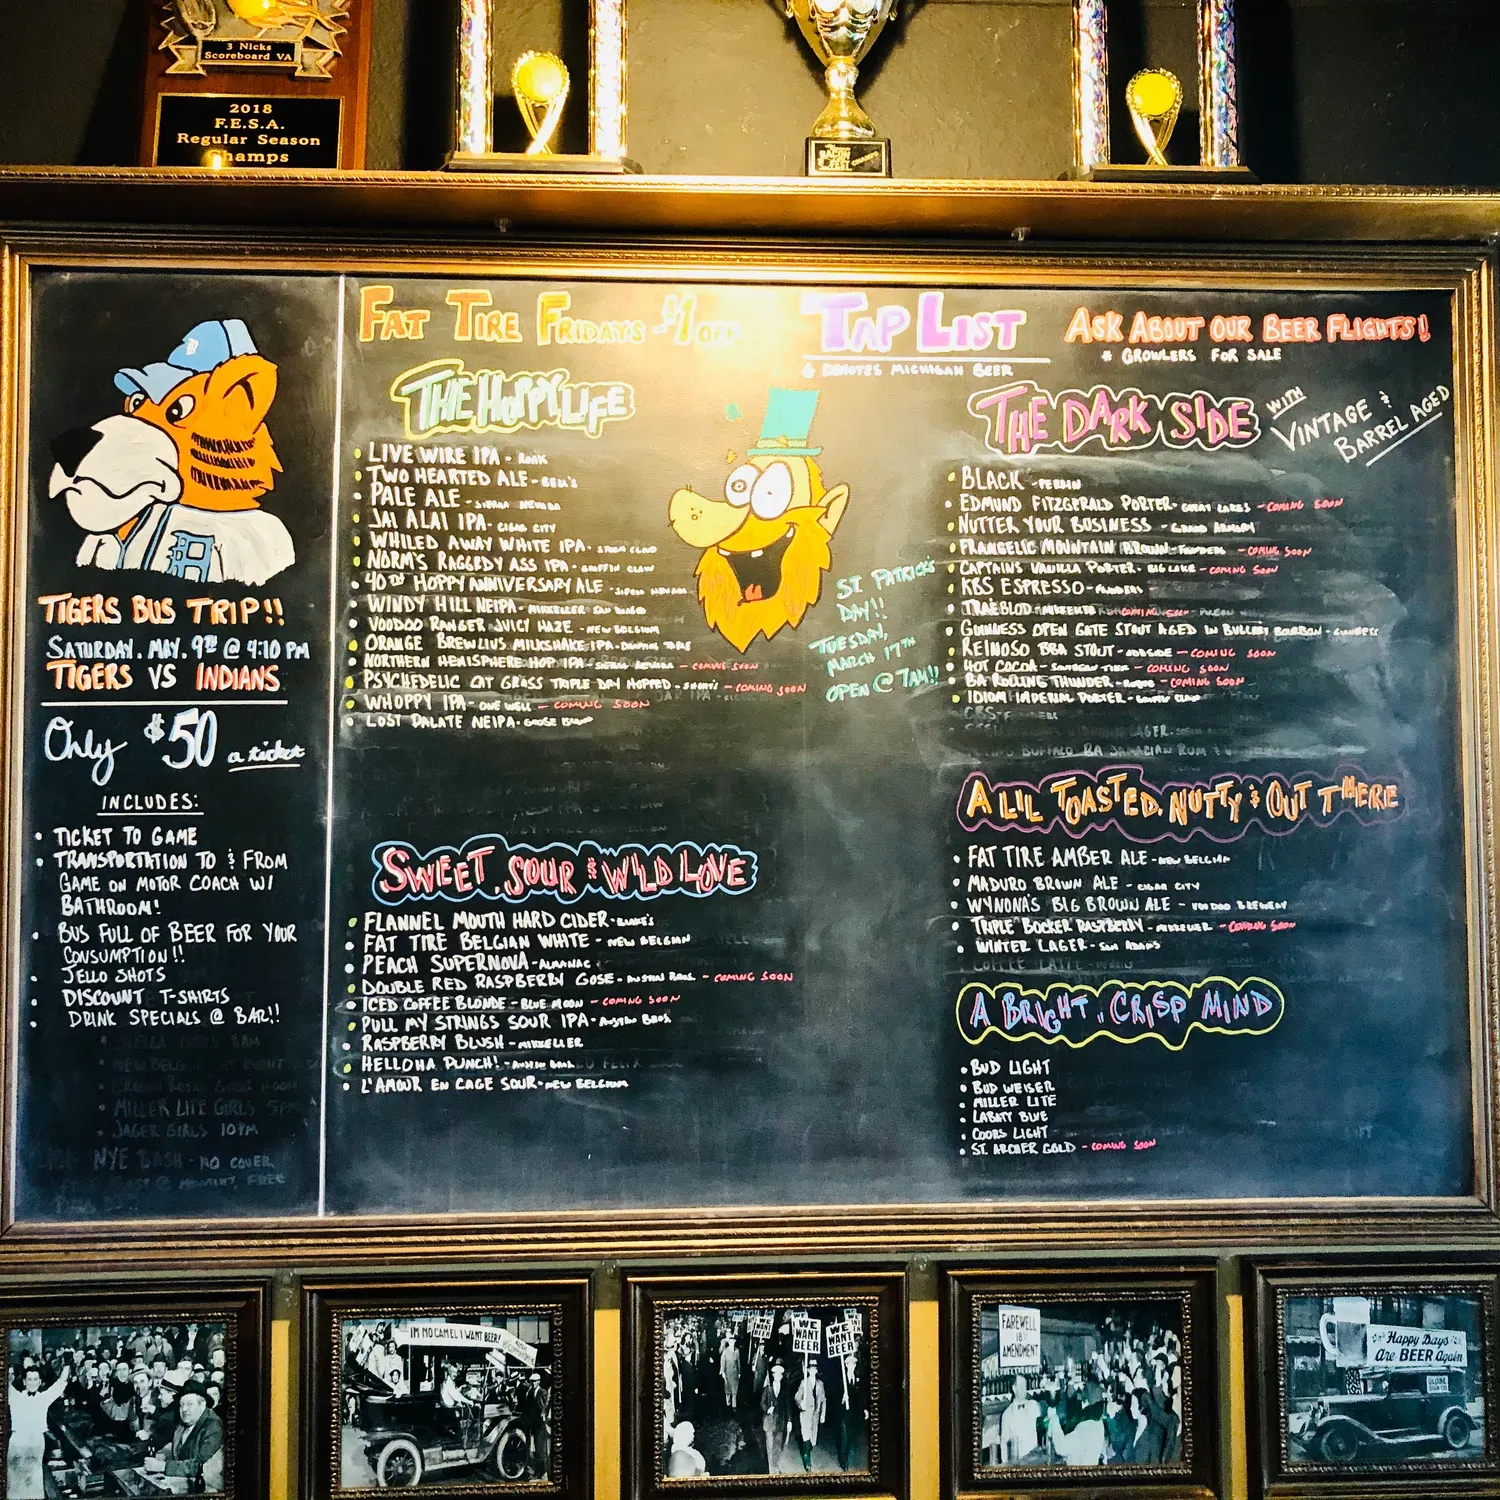 3 Nicks
Scoreboard VA
2018
F.E.S.A.
Regular Season
Champs
BACON
FEST
TIGERS BUS TRIP!!
SATURDAY. MAY. 9TH @ 4:10 PM
TIGERS VS INDIANS
ONLY $50 a ticket
INCLUDES:
• TICKET TO GAME
• TRANSPORTATION TO & FROM
GAME ON MOTOR COACH W/
BATHROOM!
• BUS FULL OF BEER FOR YOUR
CONSUMPTION!!
• JELLO SHOTS
• DISCOUNT T-SHIRTS
• DRINK SPECIALS @ BAR!!
MILLER LITE GIRLS 5PM
JAGER GIRLS 10PM
NYE BASH - NO COVER
FAT TIRE FRIDAYS $1 OFF
TAP LIST
DENOTES MICHIGAN BEER
ASK ABOUT OUR BEER FLIGHTS!
* GROWLERS FOR SALE
THE HOPPY LIFE
• LIVE WIRE IPA - ROAK
• TWO HEARTED ALE - BELL'S
• PALE ALE - SIERRA NEVADA
• JAI ALAI IPA - CIGAR CITY
• WHILED AWAY WHITE IPA - STEAM CLOUD
• NORM'S RAGGEDY ASS IPA - GRIFFIN CLAW
• 40TH HOPPY ANNIVERSARY ALE - SIERRA NEVADA
• WINDY HILL NEIPA - MIKKELLER SAN DIEGO
• VOODOO RANGER JUICY HAZE - NEW BELGIUM
• ORANGE BREWLIUS MILKSHAKE IPA - DRAFTING TABLE
• NORTHERN HEMISPHERE HOP IPA - SIERRA NEVADA - COMING SOON
• PSYCHEDELIC CAT GRASS TRIPLE DRY HOPPED - SHORT'S - COMING SOON
• WHOPPY IPA - ONE WELL - COMING SOON
• LOST PALATE NEIPA - GOOSE ISLAND
ST PATRICK'S
DAY!!
TUESDAY,
MARCH 17TH
OPEN @ 7AM!!
SWEET, SOUR & WILD LOVE
• FLANNEL MOUTH HARD CIDER - BLAKE'S
• FAT TIRE BELGIAN WHITE - NEW BELGIAN
• PEACH SUPERNOVA - ALMANAC
• DOUBLE RED RASPBERRY GOSE - AUSTIN BROS. - COMING SOON
• ICED COFFEE BLONDE - BLUE MOON - COMING SOON
• PULL MY STRINGS SOUR IPA - AUSTIN BROS.
• RASPBERRY BLUSH - MIKKELLER
• HELLOHA PUNCH! - AUSTIN BROS.
• L'AMOUR EN CAGE SOUR - NEW BELGIUM
THE DARK SIDE WITH VINTAGE & BARREL AGED
• BLACK - PERRIN
• EDMUND FITZGERALD PORTER - GREAT LAKES - COMING SOON
• NUTTER YOUR BUSINESS - GRAND ARMORY
• FRANGELIC MOUNTAIN BROWN - FOUNDERS - COMING SOON
• CAPTAINS VANILLA PORTER - BIG LAKE - COMING SOON
• KBS ESPRESSO - FOUNDERS
• TRAEBLOD - MIKKELLER - COMING SOON
• GUINNESS OPEN GATE STOUT AGED IN BULLEIT BOURBON - GUINNESS
• REINOSO BBA STOUT - ODDSIDE - COMING SOON
• HOT COCOA - SOUTHERN TIER - COMING SOON
• BA ROLLING THUNDER - ROGUE - COMING SOON
• IDIOM IMPERIAL PORTER - GRIFFIN CLAW
BUFFALO BA JAMACIAN RUM
A LIL TOASTED, NUTTY & OUT THERE
• FAT TIRE AMBER ALE - NEW BELGIUM
• MADURO BROWN ALE - CIGAR CITY
• WYNONA'S BIG BROWN ALE - VOODOO BREWERY
• TRIPLE BOCKER RASPBERRY - MIKKELLER - COMING SOON
• WINTER LAGER - SAM ADAMS
A BRIGHT, CRISP MIND
• BUD LIGHT
• BUD WEISER
• MILLER LITE
• LABATT BLUE
• COORS LIGHT
• ST. ARCHER GOLD - COMING SOON
I'M NO CAMEL I WANT BEER!
WE
WANT
BEER
WE
WANT
BEER
FAREWELL
18TH
AMENDMENT
Happy Days
Are BEER Again